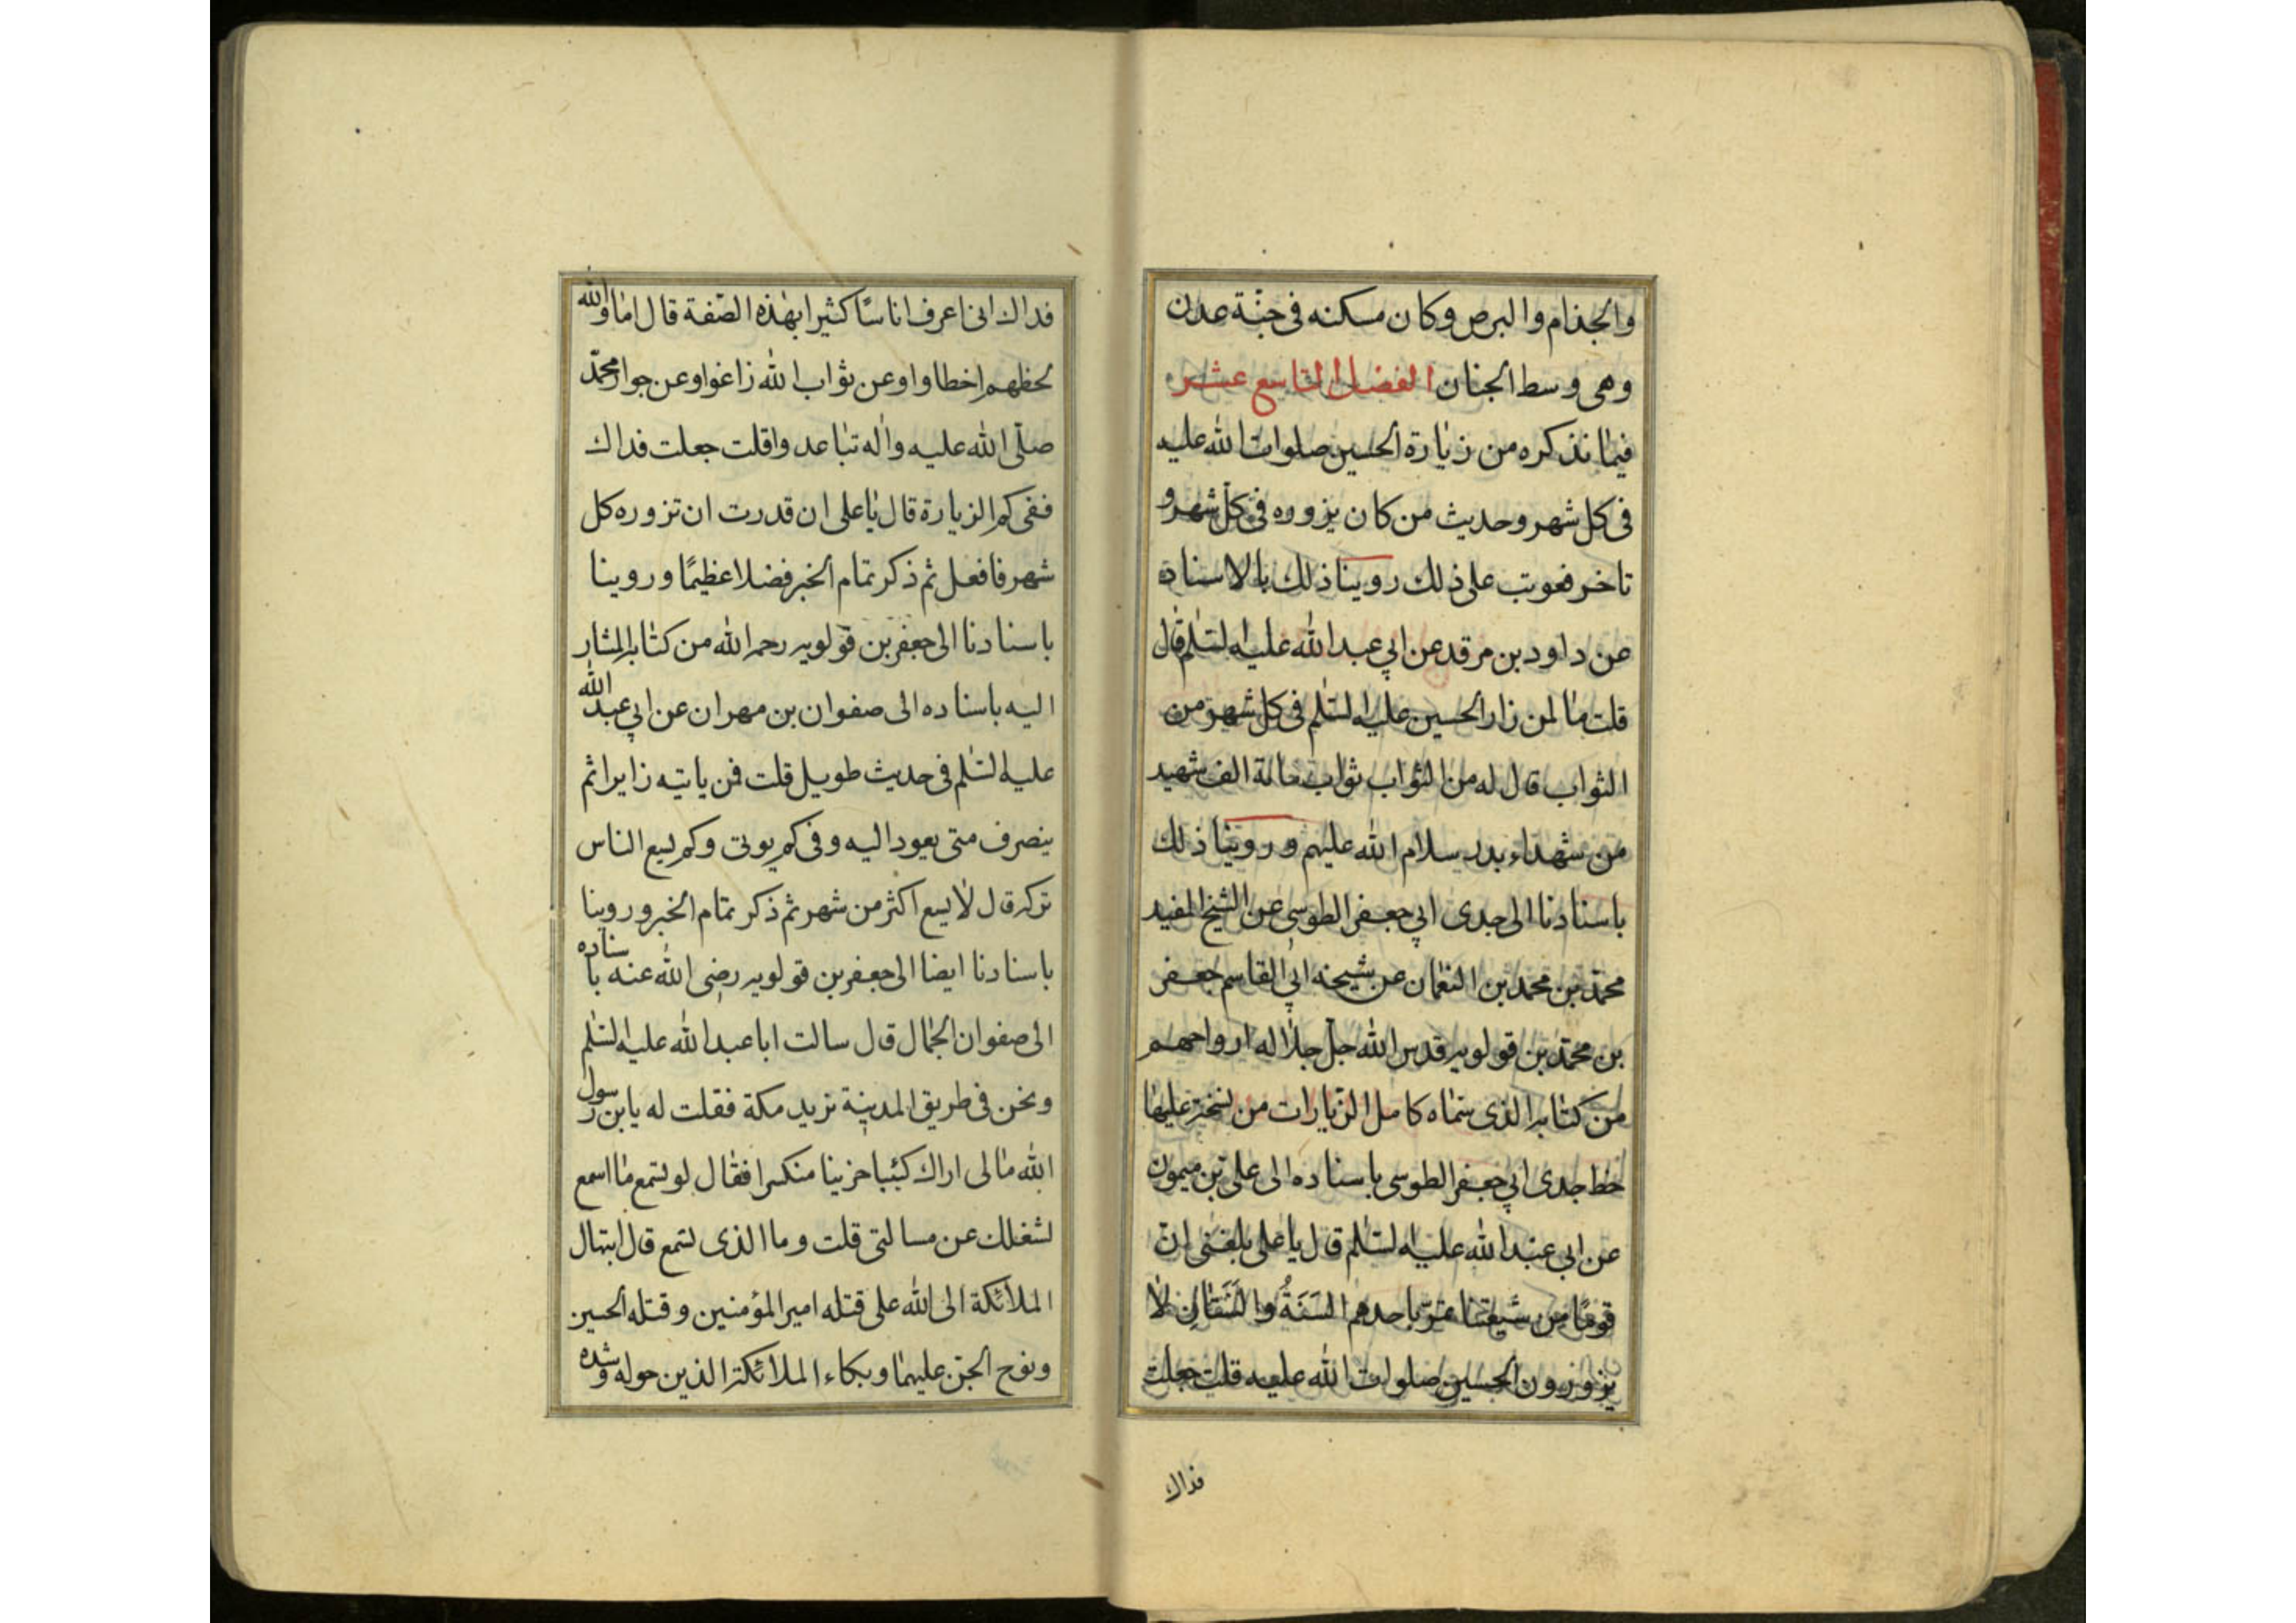 والجذام والبرص وكان مسكنه فى جنّة عدن
وهى وسط الجنان الفصل التاسع عشر
فيما نذكره من زيارة الحسين صلوات الله عليه
فى كل شهر وحديث من كان يزوره فى كل شهر و
تاخر فعوتب على ذلك روينا ذلك بالاسناد
عن داود بن مرقد عن ابي عبد الله عليه السّلم قال
قلت ما لمن زار الحسين عليه السّلم فى كل شهر من
الثواب قال له من الثواب ثواب مائة الف شهيد
من شهداء بدر سلام الله عليهم وروينا ذلك
باسنادنا الى جدى ابي جعفر الطوسى عن الشيخ المفيد
محمّد بن محمد بن النعمان عن شيخه ابي القاسم جعفر
بن محمّد بن قولويه قدس الله جلّ جلاله ارواحهم
من كتابه الذى سمّاه كامل الزّيارات من نسخة عليها
خط جدى ابي جعفر الطوسى باسناده الى على بن ميمون
عن ابي عبد الله عليه السّلم قال يا على بلغنى انّ
قومًا من شيعتنا تمرّ باحدهم السَنَةُ والسَنَتَانِ لا
يزورون الحسين صلوات الله عليه قلت جعلت
فداك
فداك انى اعرف اناسًا كثيرا بهذه الصّفة قال اما والله
لحظهم اخطاوا وعن ثواب الله زاغوا وعن جوار محمّد
صلّى الله عليه واله تباعدوا قلت جعلت فداك
ففى كم الزيارة قال يا على ان قدرت ان تزوره كل
شهر فافعل ثم ذكر تمام الخبر فضلا عظيمًا وروينا
باسنادنا الى جعفر بن قولويه رحمه الله من كتابه المشار
اليه باسناده الى صفوان بن مهران عن ابي عبد الله
عليه السّلم فى حديث طويل قلت فمن ياتيه زايرا ثم
ينصرف متى يعود اليه وفى كم يوتى وكم يسع الناس
تركه قال لا يسع اكثر من شهر ثم ذكر تمام الخبر وروينا
باسنادنا ايضا الى جعفر بن قولويه رضى الله عنه باسناده
الى صفوان الجمال قال سالت ابا عبد الله عليه السّلم
ونحن فى طريق المدينة نريد مكة فقلت له يا بن رسول
الله ما لى اراك كئيبا حزينا منكسرا فقال لو تسمع ما اسمع
لشغلك عن مسالتى قلت وما الذى تسمع قال ابتهال
الملائكة الى الله على قتله امير المؤمنين وقتله الحسين
ونوح الجنّ عليهما وبكاء الملائكة الذين حوله وشده